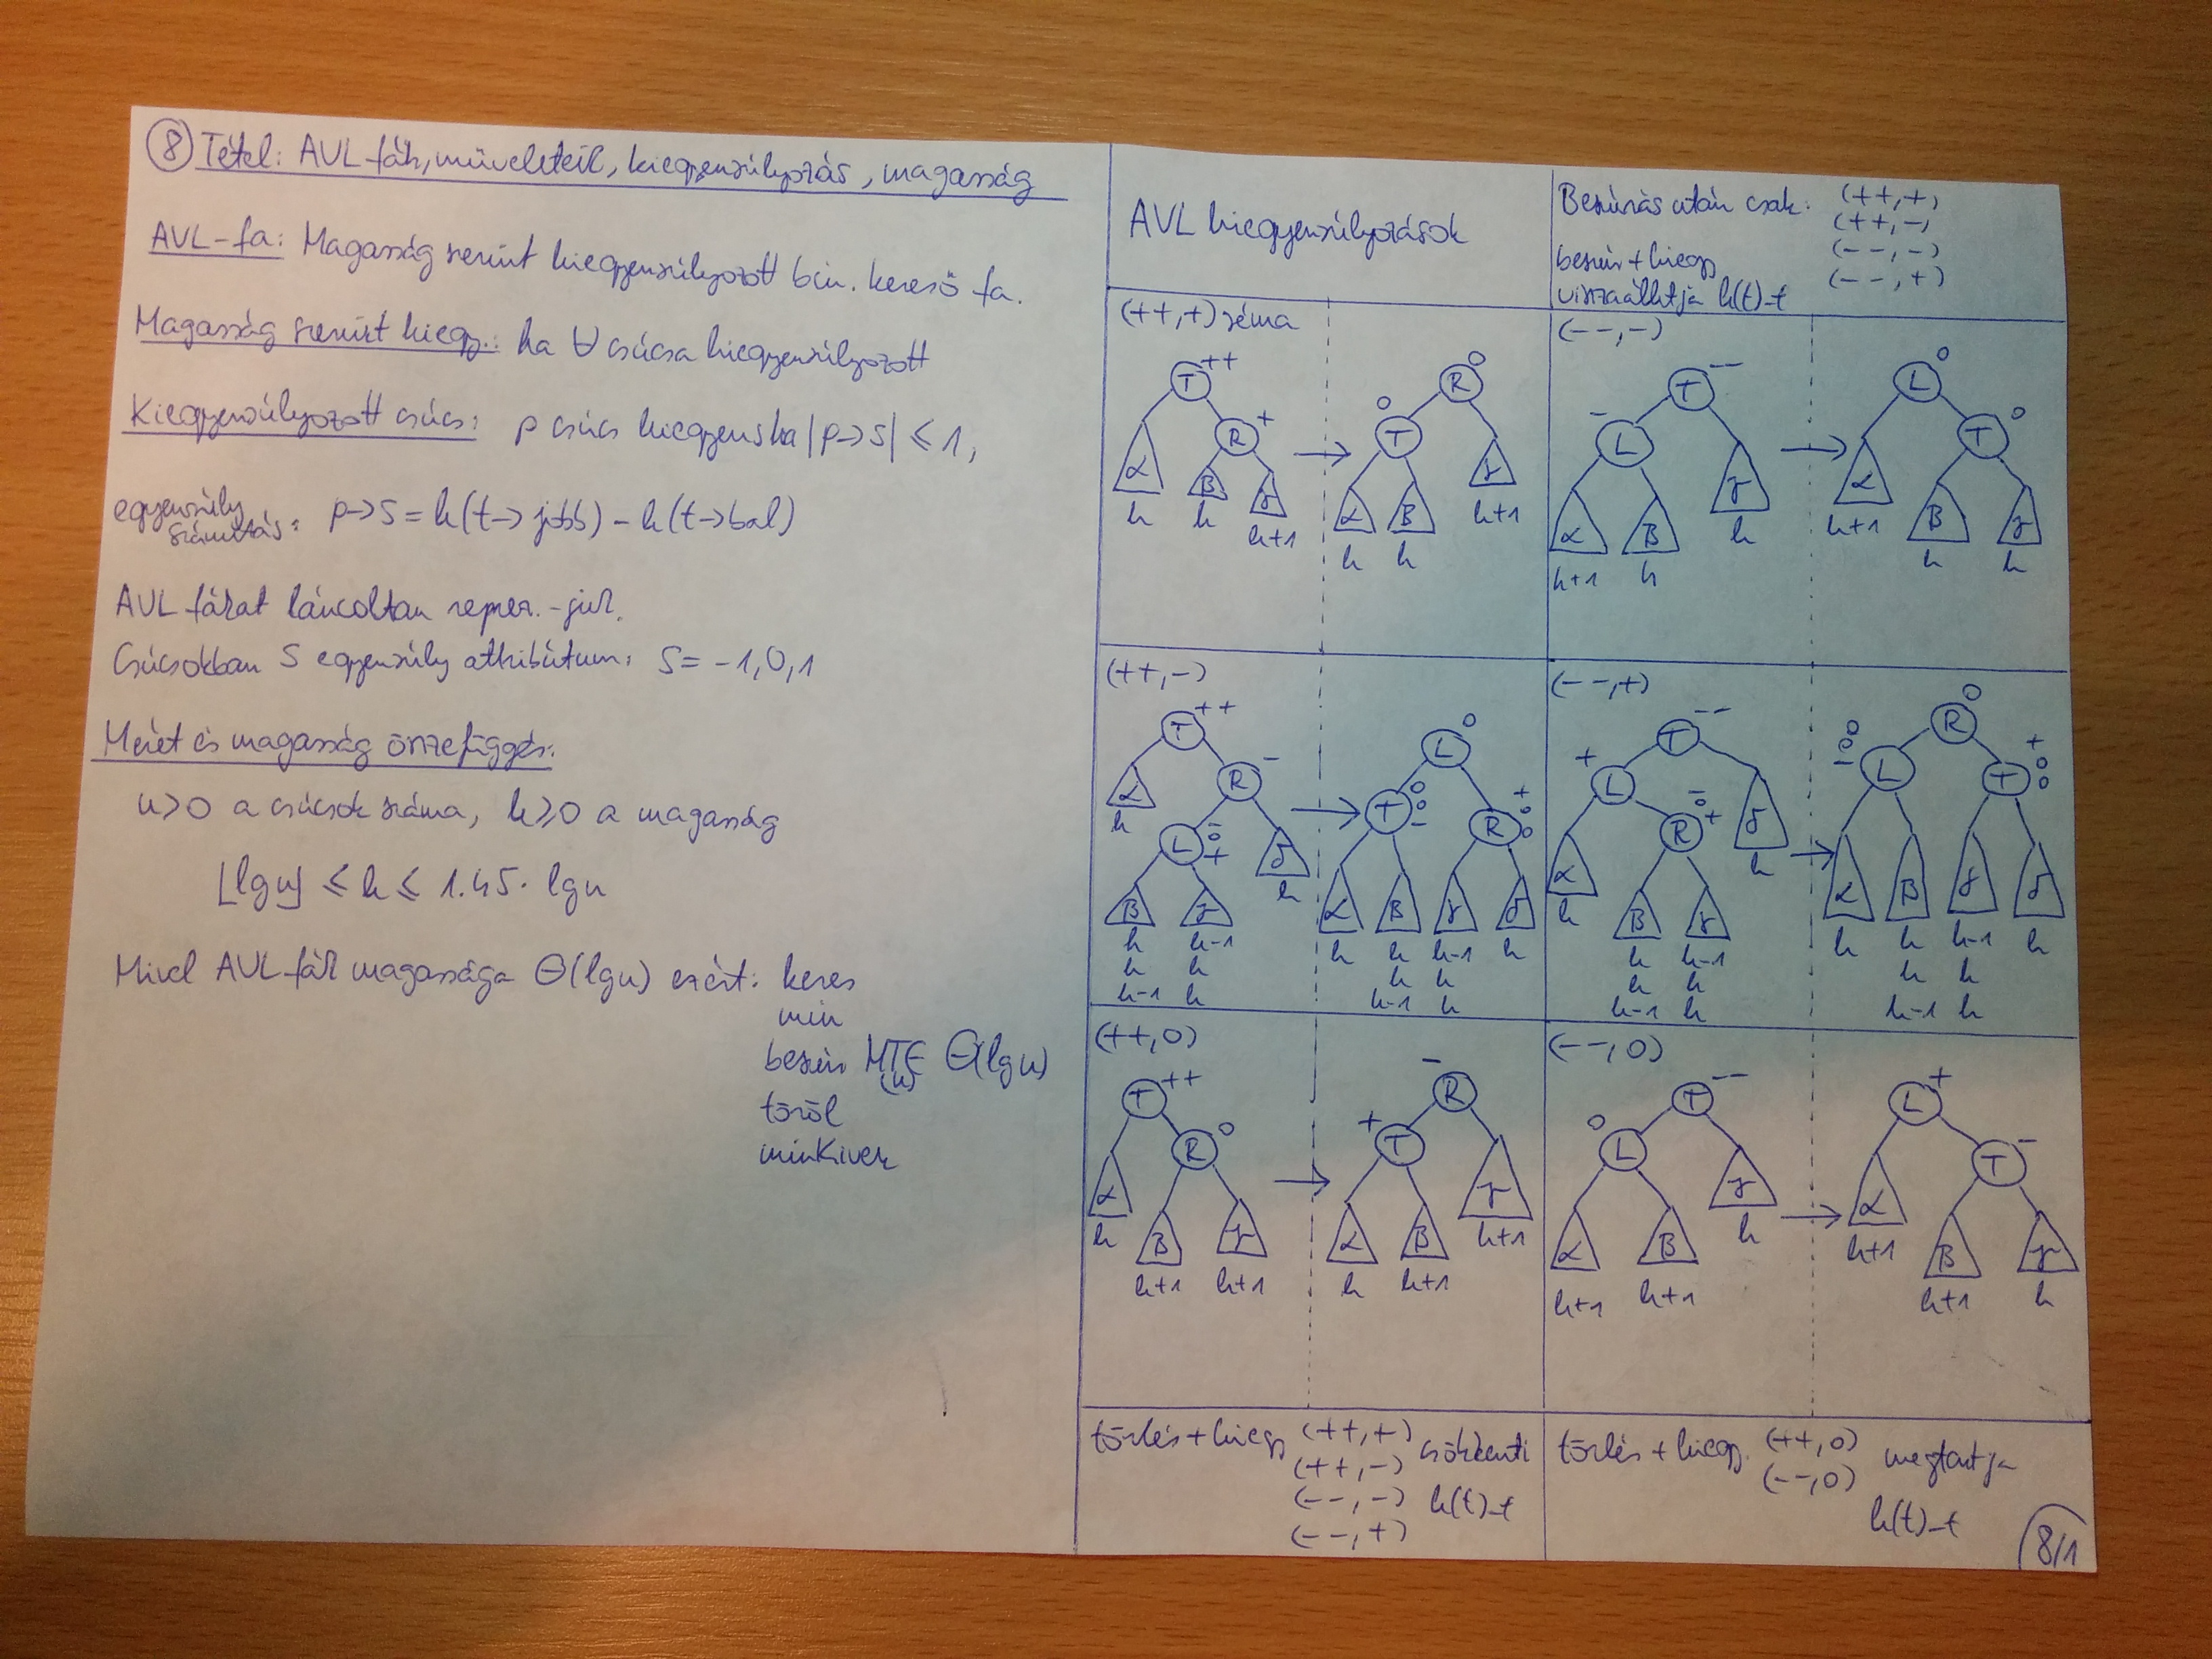 ⑧ Tétel: AVL fák, műveleteik, kiegyensúlyozás, magasság
AVL-fa: Magasság szerint kiegyensúlyozott bin. kereső fa.
Magasság szerint kiegy.: ha ∀ csúcsa kiegyensúlyozott
Kiegyensúlyozott csúcs: p csúcs kiegyens ha |p→s| ≤ 1,
egyensúly
számítás: p→s = h(t→jobb) - h(t→bal)
AVL fákat láncoltan reprez.-juk.
Csúcsokban s egyensúly attribútum: s = -1,0,1
Méret és magasság összefüggés:
n>0 a csúcsok száma, h≥0 a magasság
⌊lg n⌋ ≤ h ≤ 1.45 · lg n
Mivel AVL fák magassága Θ(lg n) ezért: keres
min
beszúr MT∈ Θ(lg n)
(n)
töröl
minKivesz
AVL kiegyensúlyozások
Beszúrás után csak: (++,+)
(++,-)
(--,-)
(--,+)
beszúr + kiegy
visszaállítja h(t)-t
(++,+) séma
T ++
R +
α β γ
h h h+1
→
R 0
T 0
α β γ
h h h+1
(--,-)
T --
L -
α β γ
h+1 h h
→
L 0
T 0
α β γ
h+1 h h
(++,-)
T ++
R -
L - 0 +
α β γ δ
h h h-1 h
h h
h-1 h
→
L 0
T 0 0 -
R + 0 0
α β γ δ
h h h-1 h
h h
h-1 h
(--,+)
T --
L +
R - 0 +
α β γ δ
h h h-1 h
h h
h-1 h
→
R 0
L 0 0 -
T + 0 0
α β γ δ
h h h-1 h
h h
h-1 h
(++,0)
T ++
R 0
α β γ
h h+1 h+1
→
R -
T +
α β γ
h h+1 h+1
(--,0)
T --
L 0
α β γ
h+1 h+1 h
→
L +
T -
α β γ
h+1 h+1 h
törlés + kiegy (++,+) csökkenti
(++,-)
(--,-) h(t)-t
(--,+)
törlés + kiegy. (++,0) megtartja
(--,0)
h(t)-t
8/1